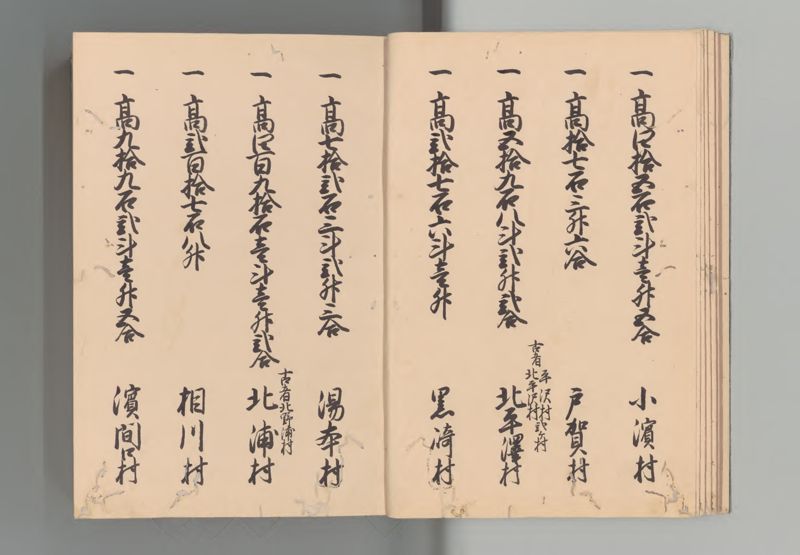 一 高四拾五石弐斗壱升五合 小濱村
一 高拾七石三升六合 戸賀村
一 高五拾九石八斗弐升弐合 北平澤村
古者 平沢村 北平沢村 弐ヶ村
一 高弐拾七石六斗壱升 黒﨑村
一 高七拾弐石三斗弐升三合 湯本村
一 高四百九拾石壱斗壱升弐合 北浦村
古者北野浦村
一 高弐百拾七石八升 相川村
一 高九拾九石弐斗壱升五合 濱間口村